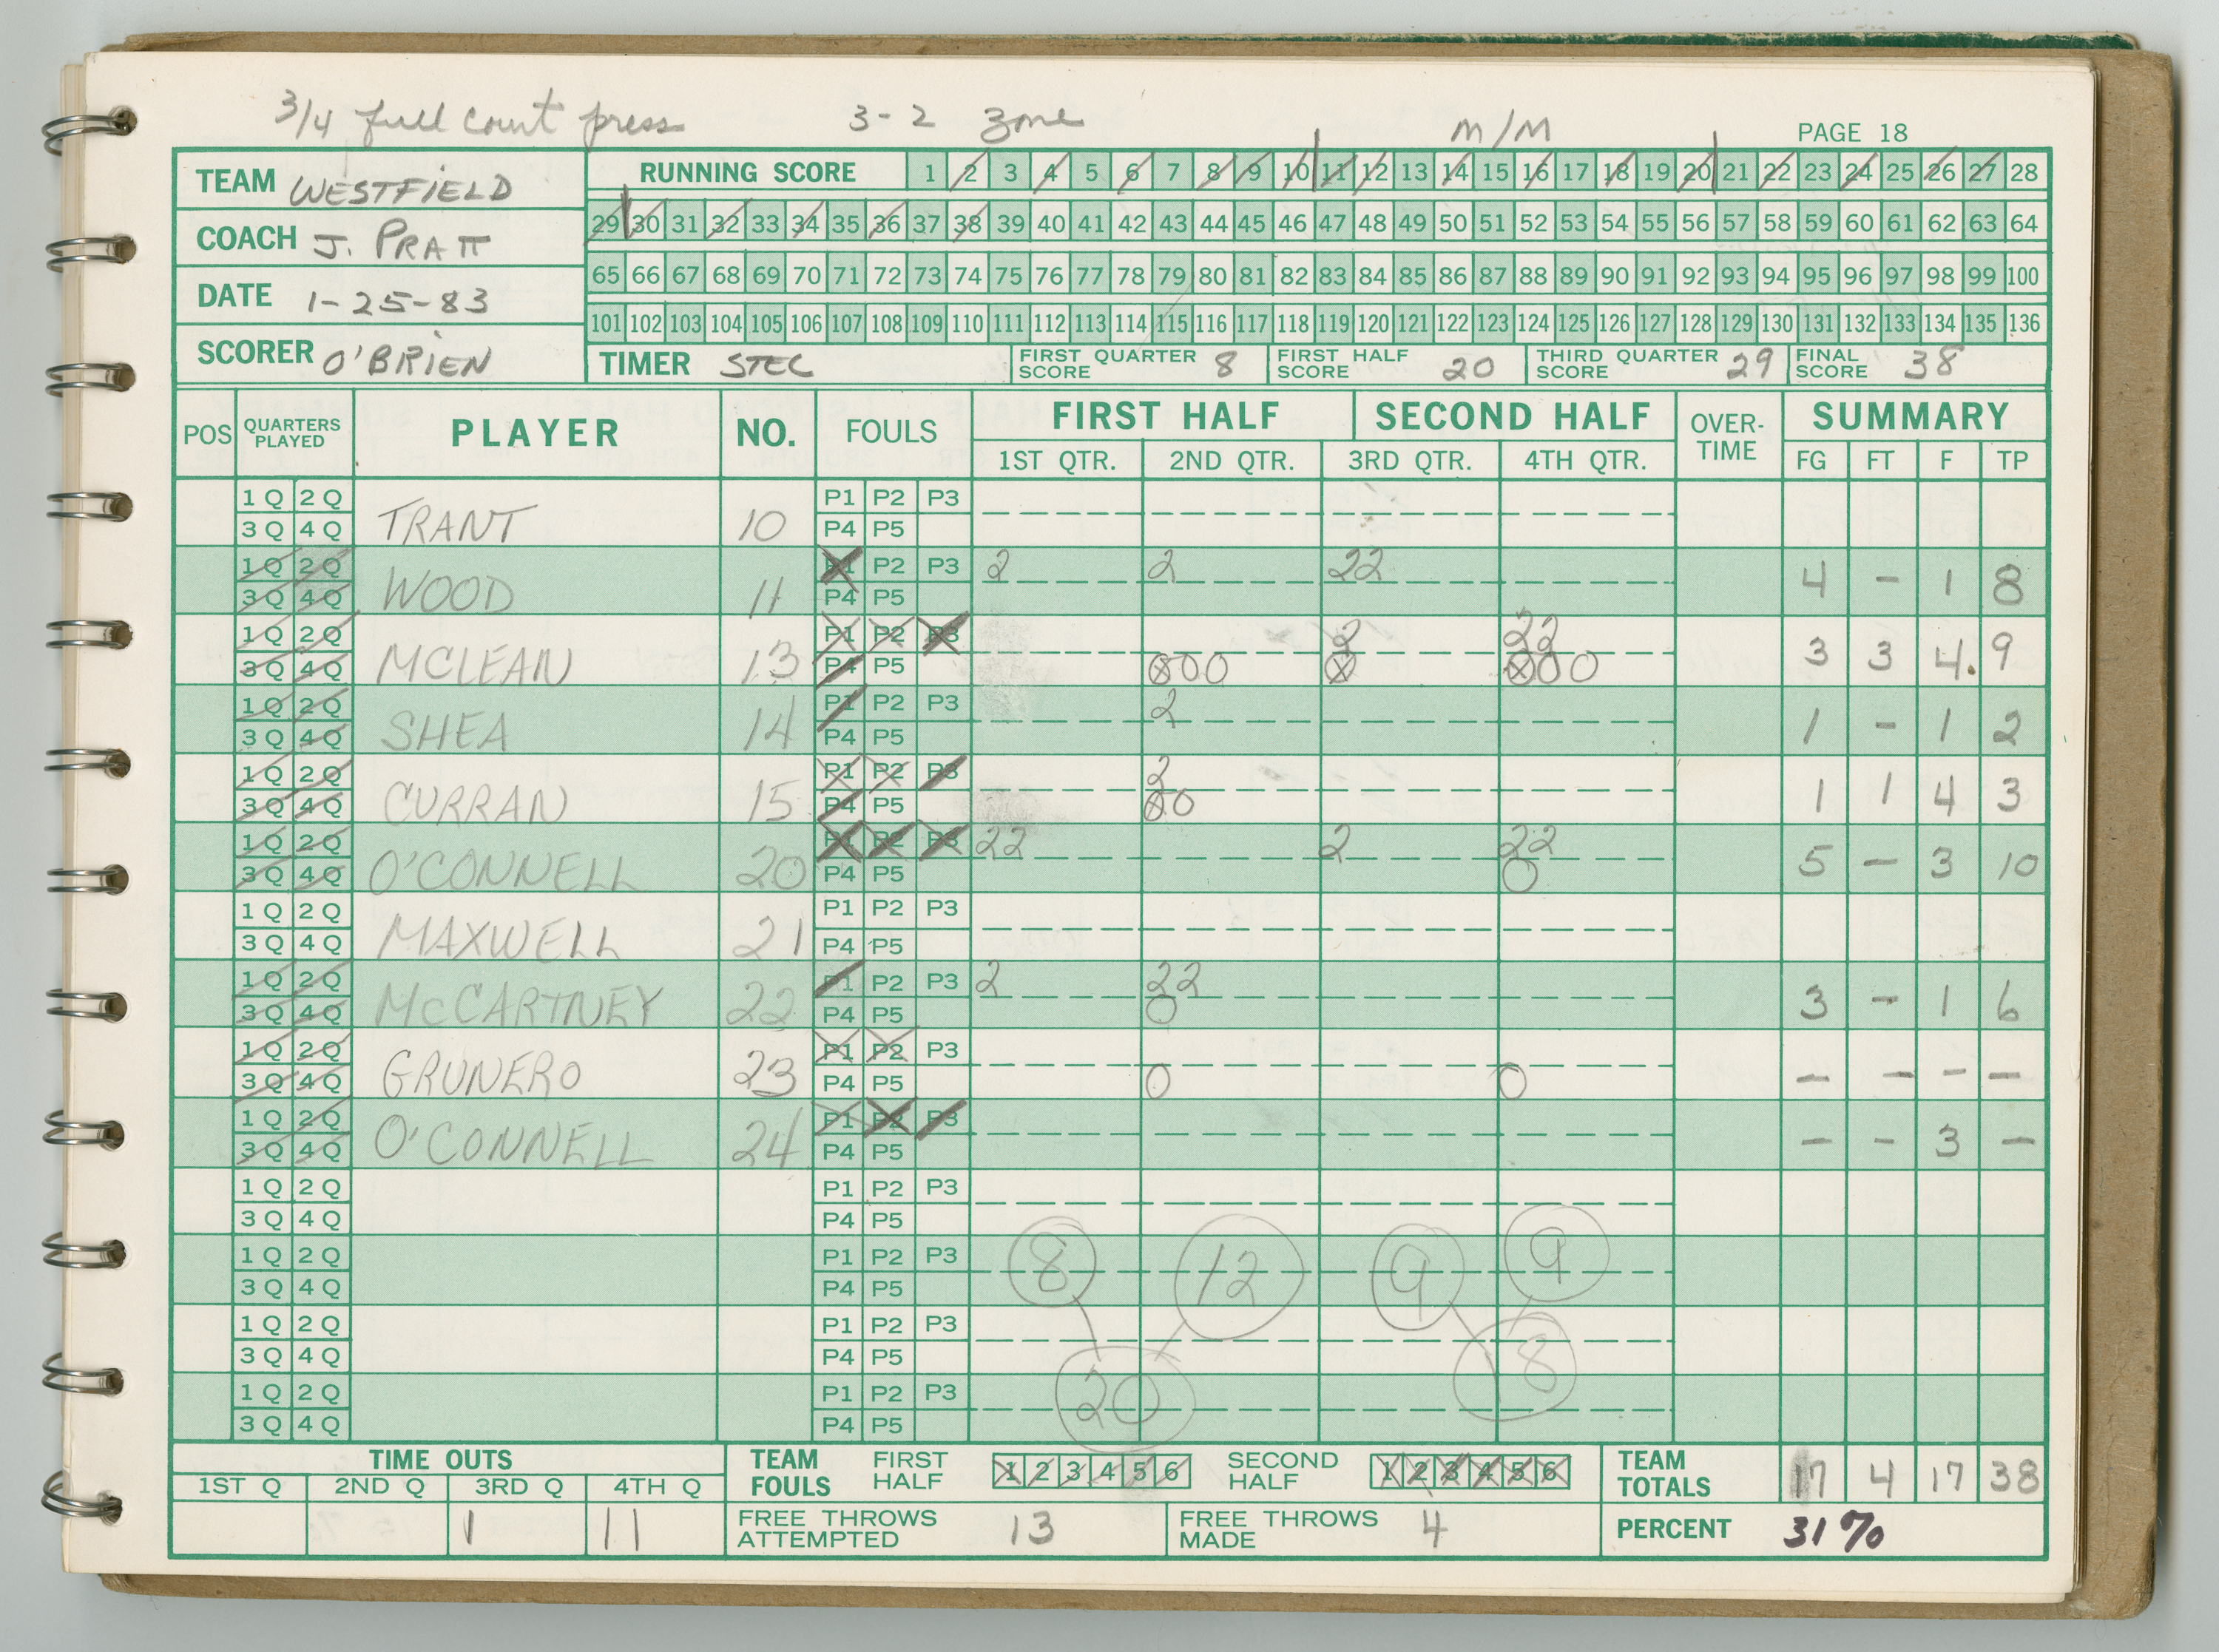 3/4 full court press 3-2 zone m/m PAGE 18
TEAM WESTFIELD
COACH J. PRATT
DATE 1-25-83
SCORER O'BRIEN
RUNNING SCORE 1 2 3 4 5 6 7 8 9 10 11 12 13 14 15 16 17 18 19 20 21 22 23 24 25 26 27 28
29 30 31 32 33 34 35 36 37 38 39 40 41 42 43 44 45 46 47 48 49 50 51 52 53 54 55 56 57 58 59 60 61 62 63 64
65 66 67 68 69 70 71 72 73 74 75 76 77 78 79 80 81 82 83 84 85 86 87 88 89 90 91 92 93 94 95 96 97 98 99 100
101 102 103 104 105 106 107 108 109 110 111 112 113 114 115 116 117 118 119 120 121 122 123 124 125 126 127 128 129 130 131 132 133 134 135 136
TIMER STEC FIRST QUARTER SCORE 8 FIRST HALF SCORE 20 THIRD QUARTER SCORE 29 FINAL SCORE 38
POS QUARTERS PLAYED PLAYER NO. FOULS FIRST HALF SECOND HALF OVER-TIME SUMMARY
1ST QTR. 2ND QTR. 3RD QTR. 4TH QTR. FG FT F TP
1 Q 2 Q P1 P2 P3
3 Q 4 Q TRANT 10 P4 P5
1 Q 2 Q P1 P2 P3 2 2 22
3 Q 4 Q WOOD 11 P4 P5 4 - 1 8
1 Q 2 Q P1 P2 P3 2 22
3 Q 4 Q MCLEAN 13 P4 P5 ⊗00 ⊗ ⊗00 3 3 4. 9
1 Q 2 Q P1 P2 P3 2
3 Q 4 Q SHEA 14 P4 P5 1 - 1 2
1 Q 2 Q P1 P2 P3 2
3 Q 4 Q CURRAN 15 P4 P5 ⊗0 1 1 4 3
1 Q 2 Q P1 P2 P3 22 2 22
3 Q 4 Q O'CONNELL 20 P4 P5 0 5 - 3 10
1 Q 2 Q P1 P2 P3
3 Q 4 Q MAXWELL 21 P4 P5
1 Q 2 Q P1 P2 P3 2 22
3 Q 4 Q McCARTNEY 22 P4 P5 0 3 - 1 6
1 Q 2 Q P1 P2 P3
3 Q 4 Q GRUNERO 23 P4 P5 0 0 - - - -
1 Q 2 Q P1 P2 P3
3 Q 4 Q O'CONNELL 24 P4 P5 - - 3 -
1 Q 2 Q P1 P2 P3
3 Q 4 Q P4 P5
1 Q 2 Q P1 P2 P3 8 12 9 9
3 Q 4 Q P4 P5
1 Q 2 Q P1 P2 P3
3 Q 4 Q P4 P5 18
1 Q 2 Q P1 P2 P3 20
3 Q 4 Q P4 P5
TIME OUTS
1ST Q 2ND Q 3RD Q 4TH Q
1 11
TEAM FOULS FIRST HALF 1 2 3 4 5 6 SECOND HALF 1 2 3 4 5 6 TEAM TOTALS 17 4 17 38
FREE THROWS ATTEMPTED 13 FREE THROWS MADE 4 PERCENT 31%